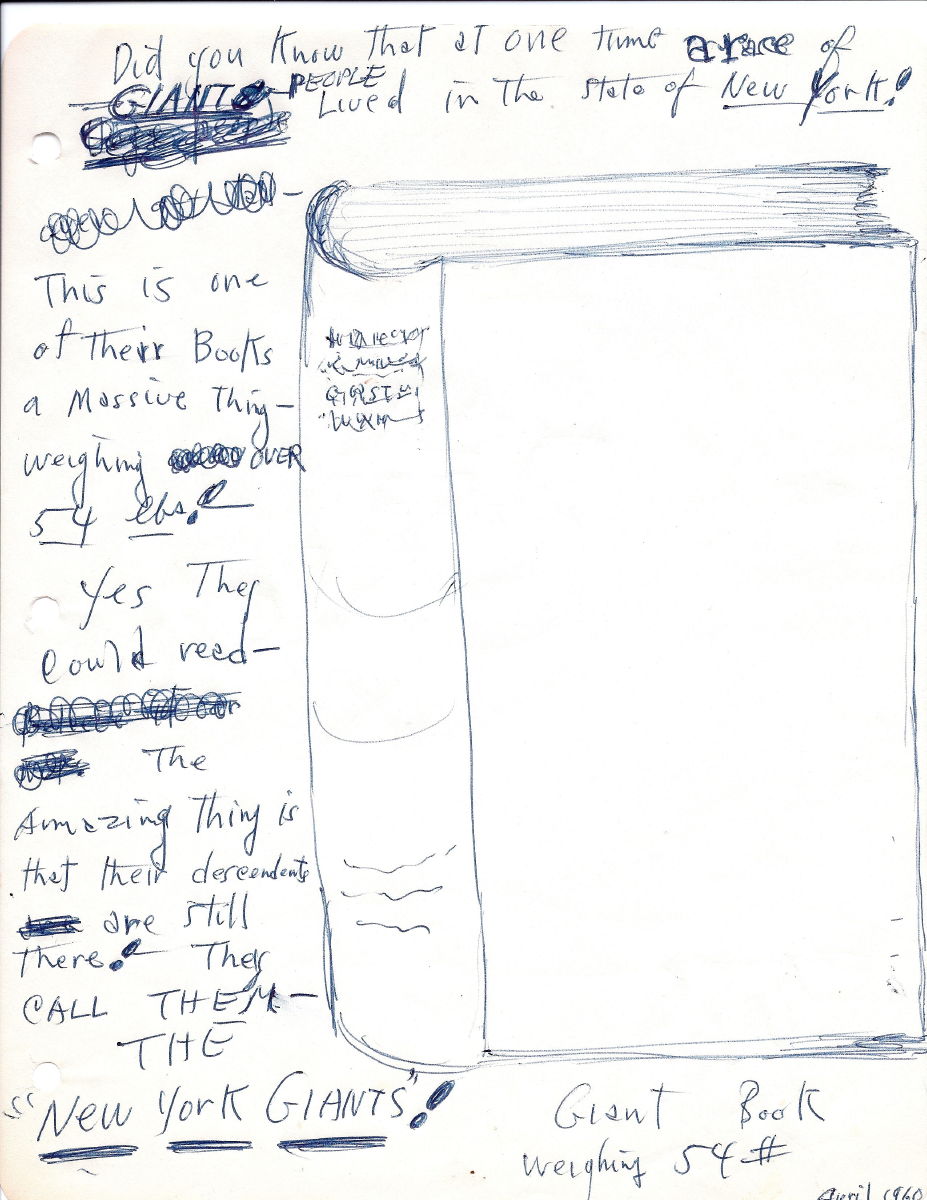 Did you Know that at one time a race of
GIANT PEOPLE Lived in the state of New York!
This is one
of their Books
a Massive Thing-
weighing OVER
54 lbs!
Yes They
Could read-
The
Amazing Thing is
that their descendents
are still
There! They
CALL THEM-
THE
"New York GIANTS"!
Giant Book
weighing 54 #
April 1960